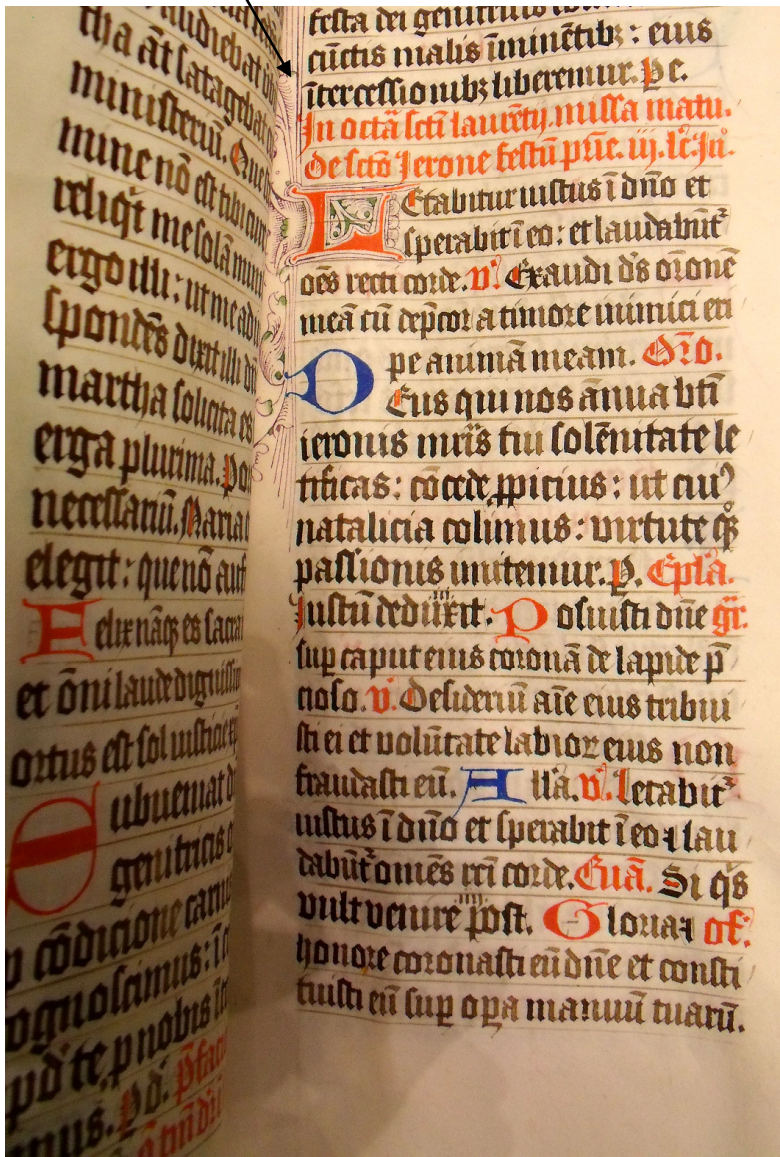 udiebat
tha āt satagebat
ministeriū. Que
mine nō est tibi cure
reliqt me solā mini
ergo illi: ut me adiu
spondēs dixit illi dn̄
martha solicita es
erga plurima. Por
necessariū. Maria
elegit: que nō auf
Felix nāqꝫ es sacra
et ōni laude dignissi
ortus est sol iusticie xp̄
Subueniat d
genitricis
cōdicione carnis
ognoscimus: ī c
apd̓ te p nobis īt
festa dei genitricis
cūctis malis īminētibꝫ: eius
ītercessionibꝫ liberemur. Pe.
In octā scti laurētij. missa matu.
De scto Jerone festū pn̄e. iij. lc̄. In̄.
Letabitur iustus ī dn̄o et
sperabit ī eo: et laudabūt᷑
oēs recti corde. v̓. Exaudi d̄s orōnē
meā cū dep̄cor a timore inimici eri
pe animā meam. Orō.
Deus qui nos ānua bt̄i
ieronis mr̄is tui solēnitate le
tificas: cōcede ꝓpicius: ut cuiꝰ
natalicia colimus: virtutē qꝫ
passionis imitemur. P. Epl̄a.
Justū deduxit. Posuisti dn̄e gr̄.
sup caput eius coronā de lapide p̄
cioso. v̓. Desideriū aīe eius tribui
sti ei et volūtate labioꝝ eius non
fraudasti eū. All̄a. v̓. Letabit᷑
iustus ī dn̄o et sperabit ī eo ⁊ lau
dabūt᷑ omēs rc̄i corde. Euā. Si qͥs
vult venire post. Gloria ⁊ of̄.
honore coronasti eū dn̄e et consti
tuisti eū sup oꝑa manuū tuarū.